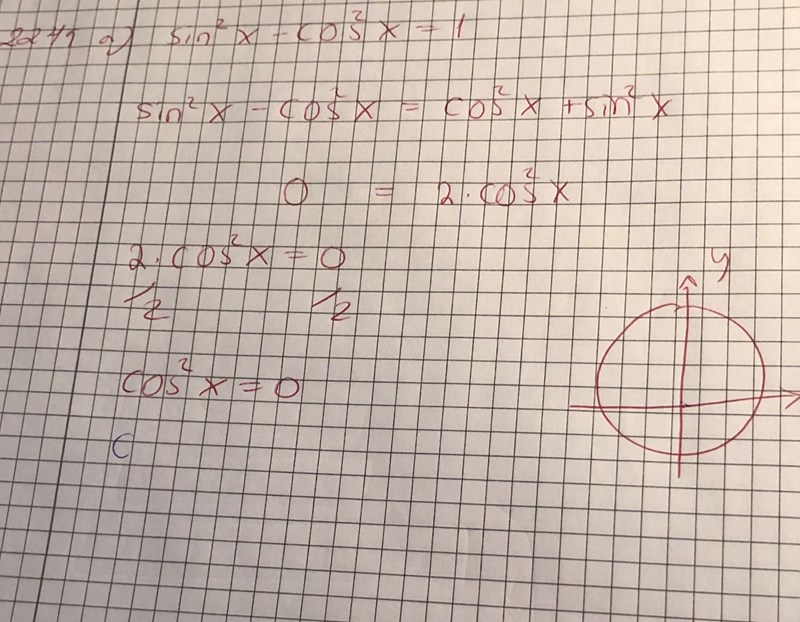 a) sin²x - cos²x = 1
sin²x - cos²x = cos²x + sin²x
0 = 2·cos²x
2·cos²x = 0
/2 /2
cos²x = 0
C
y